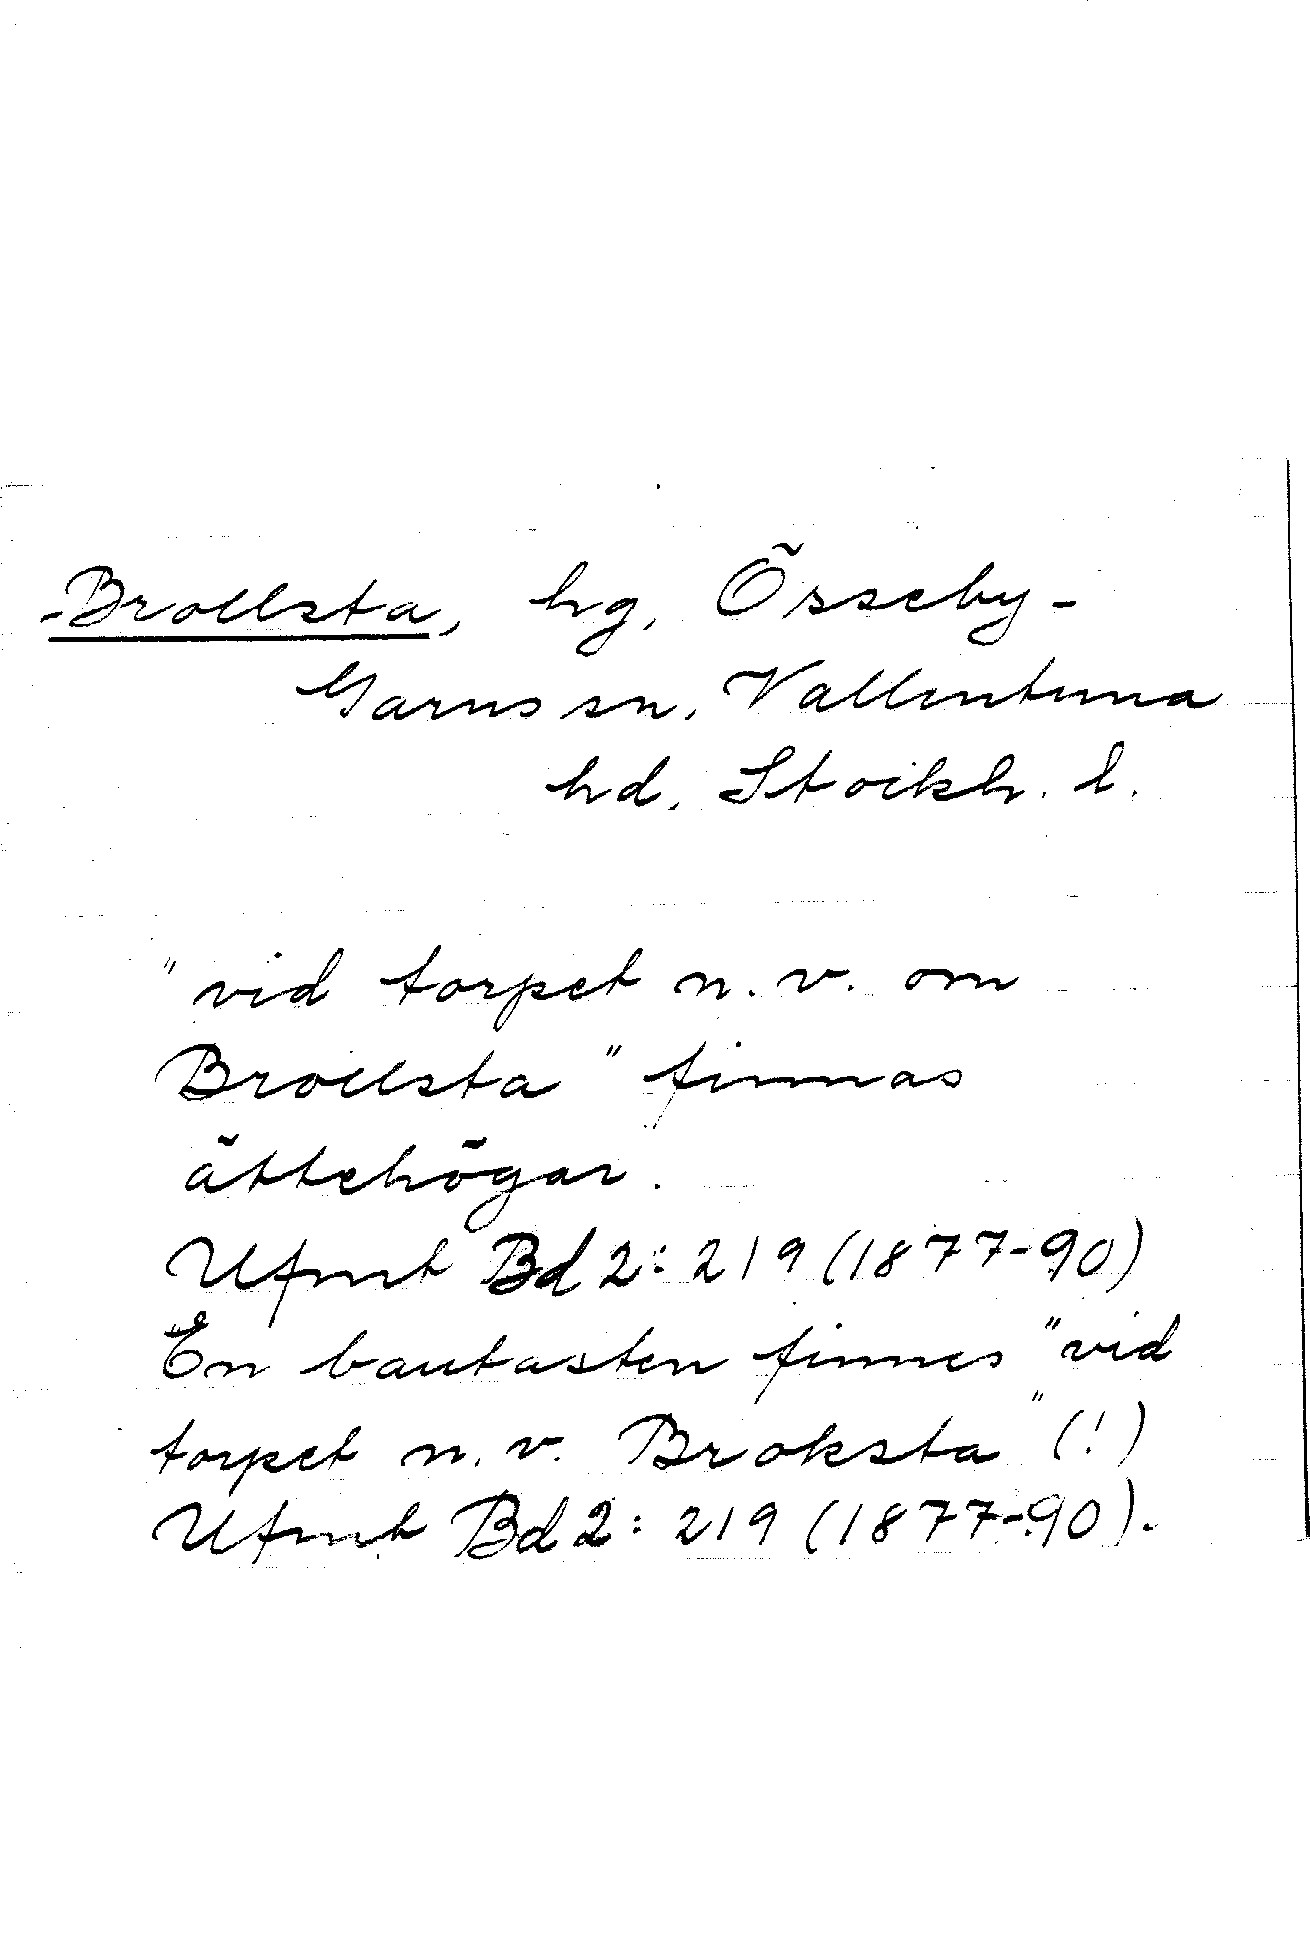 Brollsta, hg, Össeby-
Garns sn, Vallentuna
hd, Stockh. l.
"vid torpet n.v. om
Brollsta" finnas
ättehögar.
Ufmt Bd 2: 219 (1877-90)
En bautasten finnes "vid
torpet n.v. Broksta" (!)
Ufmt Bd 2: 219 (1877-90).